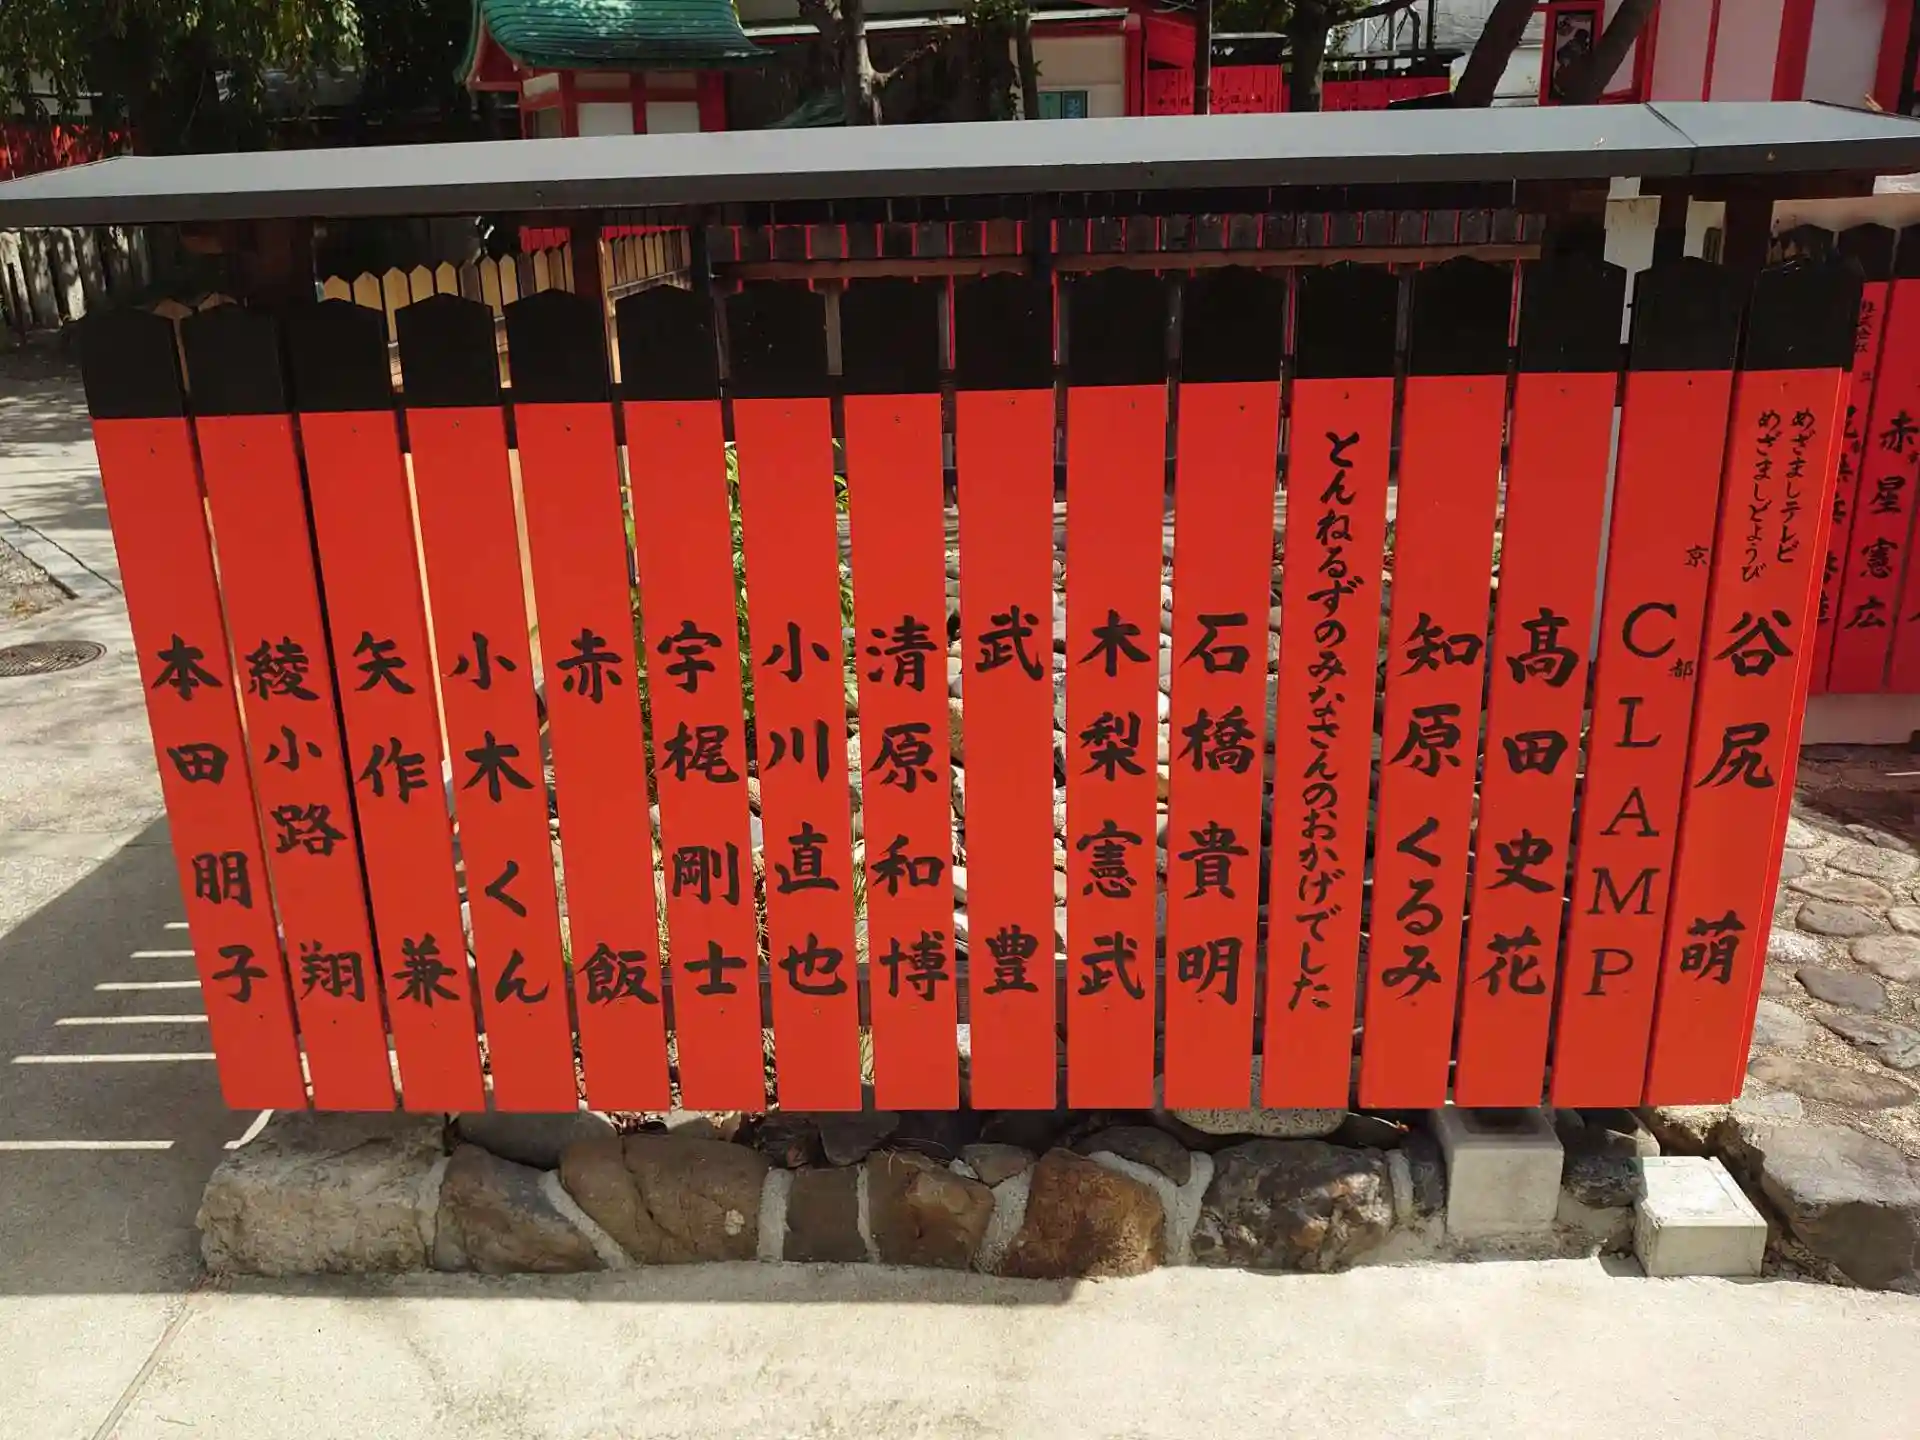 めざましテレビ
めざましどようび
谷尻 萌
京都
CLAMP
髙田史花
知原くるみ
とんねるずのみなさんのおかげでした
石橋貴明
木梨憲武
武 豊
清原和博
小川直也
宇梶剛士
赤 飯
小木くん
矢作 兼
綾小路 翔
本田朋子
赤星憲広